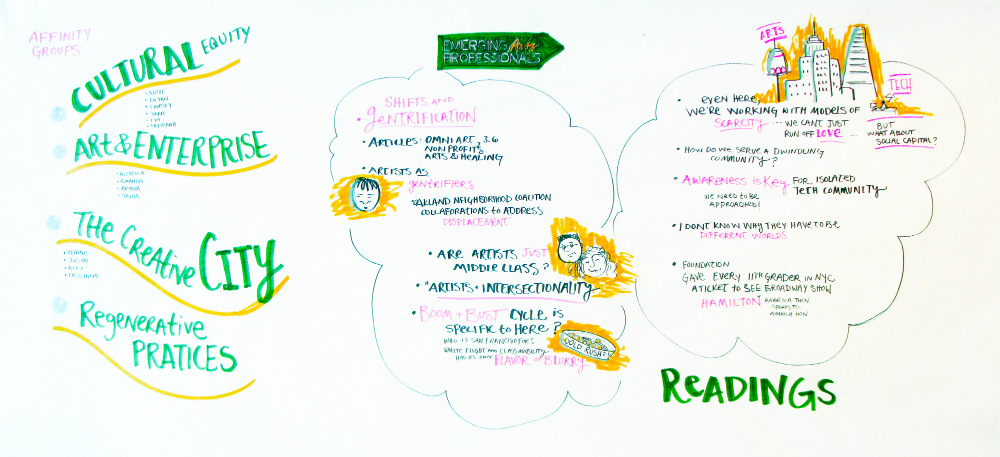 AFFINITY
GROUPS
CULTURAL EQUITY
ART & ENTERPRISE
THE CREATIVE CITY
REGENERATIVE
PRATICES
EMERGING Arts
PROFESSIONALS
SHIFTS AND
GENTRIFICATION
• ARTICLES: OMNI ART, 3.6
NON PROFITS
ARTS & HEALING
• ARTISTS AS
GENTRIFIERS
OAKLAND NEIGHBORHOOD COALITION
COLLABORATIONS TO ADDRESS
DISPLACEMENT
• ARE ARTISTS JUST
MIDDLE CLASS?
• "ARTISTS • INTERSECTIONALITY
• BOOM + BUST CYCLE IS
SPECIFIC TO HERE?
WHO IS SAN FRANCISCO FOR?
WHITE FLIGHT AND CLASS MOBILITY
HAS ITS OWN FLAVOR OF BLURRY
GOLD RUSH
ARTS
TECH
• EVEN HERE,
WE'RE WORKING WITH MODELS OF
SCARCITY ... WE CAN'T JUST
RUN OFF LOVE ...
BUT
WHAT ABOUT
SOCIAL CAPITAL?
• HOW DO WE SERVE A DWINDLING
COMMUNITY?
• AWARENESS IS KEY FOR ISOLATED
TECH COMMUNITY
WE NEED TO BE
APPROACHED
• I DONT KNOW WHY THEY HAVE TO BE
DIFFERENT WORLDS
• FOUNDATION
GAVE EVERY 11TH GRADER IN NYC
A TICKET TO SEE BROADWAY SHOW
HAMILTON AMERICA THEN
SPEAKS TO
AMERICA NOW
READINGS